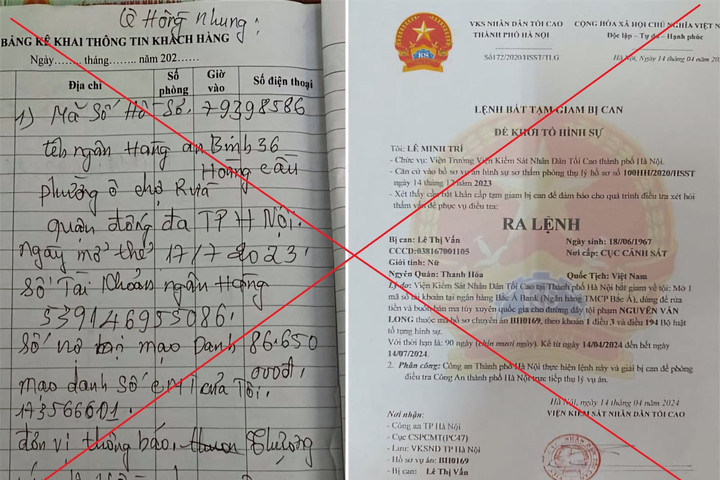 Lê Hồng Nhung:
BẢNG KÊ KHAI THÔNG TIN KHÁCH HÀNG
Ngày........ tháng........ năm 202......
Địa chỉ Số phòng Giờ vào Số điện thoại
1) Mã Số Hồ Sơ. 79398586
tên ngân Hàng an Bình 36
Hoàng cầu
phường ô chợ Rừa
quận đống đa TP H Nội.
ngày mở thẻ 17/7 2023.
Số Tài Khoản ngân Hàng
339146955086.
Số nợ bị mạo Danh 86.650
000đ.
mạo danh số eMT của Tôi.
173566601.
đơn vị thông báo. Thượng
VKS NHÂN DÂN TỐI CAO
THÀNH PHỐ HÀ NỘI
Số172/2020/HSST/TLG
CỘNG HÒA XÃ HỘI CHỦ NGHĨA VIỆT N
Độc lập - Tự do - Hạnh phúc
Hà Nội, Ngày 14 tháng 04 năm 20
LỆNH BẮT TẠM GIAM BỊ CAN
ĐỂ KHỞI TỐ HÌNH SỰ
Tôi: LÊ MINH TRÍ
- Chức vụ: Viện Trưởng Viện Kiểm Sát Nhân Dân Tối Cao thành phố Hà Nội.
- Căn cứ vào hồ sơ vụ án hình sự sơ thẩm phòng thụ lý hồ sơ số 100HH/2020/HSST
ngày 14 tháng 12 năm 2023
- Xét thấy cần bắt khẩn cấp tạm giam bị can để đảm bảo cho quá trình điều tra xét hỏi
thẩm vấn để phục vụ điều tra:
RA LỆNH
Bị can: Lê Thị Vấn Ngày sinh: 18/06/1967
CCCD:038167001105 Nơi cấp: CỤC CẢNH SÁT
Giới tính: Nữ
Nguyên Quán: Thanh Hóa Quốc Tịch: Việt Nam
Lý do: Viện Kiểm Sát Nhân Dân Tối Cao tại Thành Phố Hà Nội bắt giam về tội: Mở 1
mã số tài khoản tại ngân hàng Bắc Á Bank (Ngân hàng TMCP Bắc Á), dùng để rửa
tiền và buôn bán ma túy xuyên quốc gia cho đường dây tội phạm NGUYỄN VĂN
LONG thuộc mã hồ sơ chuyên án BH0169, theo khoản 1 điều 3 và điều 194 Bộ luật
tố tụng hình sự.
Với thời hạn là: 90 ngày (chín mươi ngày). Kể từ ngày 14/04/2024 đến hết ngày
14/07/2024.
2. Phân công: Công an Thành phố Hà Nội thực hiện lệnh này và giải bị can để phòng
điều tra Công An Thành phố Hà Nội trực tiếp thụ lý vụ án.
Hà Nội, ngày 14 tháng 04 năm 2024
VIỆN KIỂM SÁT NHÂN DÂN TỐI CAO
Nơi nhận:
- Công an TP Hà Nội
- Cục CSPCMT(PC47)
- Lưu: VKSND TP Hà Nội
- Hồ sơ vụ án: BH0169
- Bị can: Lê Thị Vấn